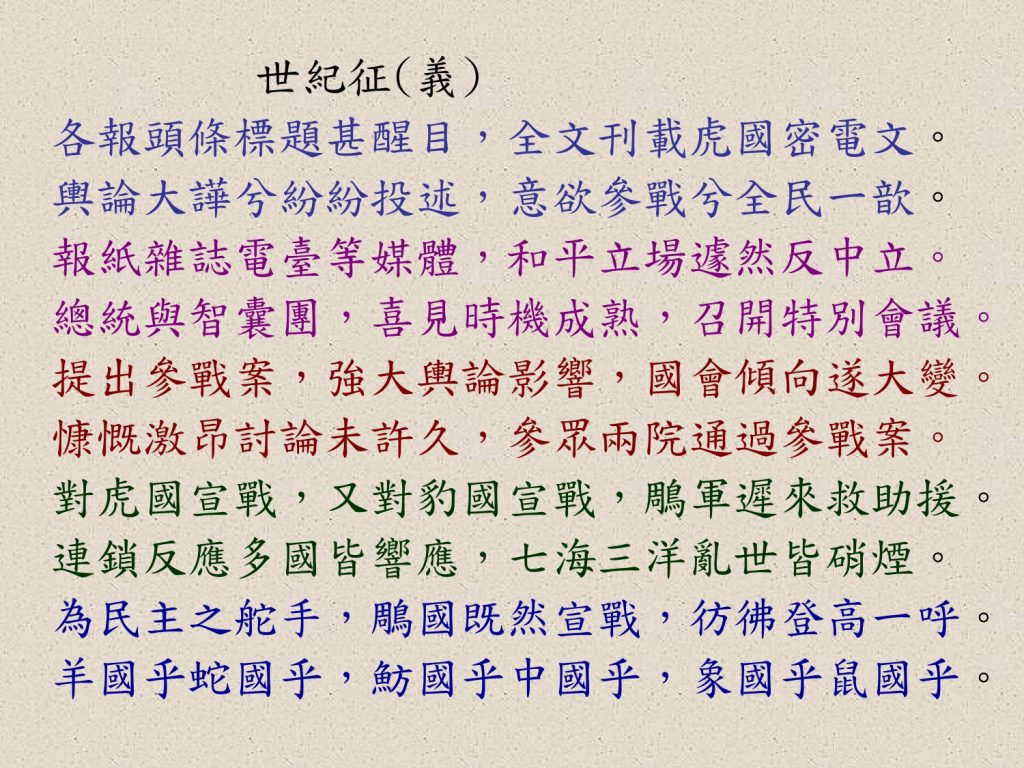 世紀征(義)
各報頭條標題甚醒目，全文刊載虎國密電文。
輿論大譁兮紛紛投述，意欲參戰兮全民一歆。
報紙雜誌電臺等媒體，和平立場遽然反中立。
總統與智囊團，喜見時機成熟，召開特別會議。
提出參戰案，強大輿論影響，國會傾向遂大變。
慷慨激昂討論未許久，參眾兩院通過參戰案。
對虎國宣戰，又對豹國宣戰，鵰軍遲來救助援。
連鎖反應多國皆響應，七海三洋亂世皆硝煙。
為民主之舵手，鵰國既然宣戰，彷彿登高一呼。
羊國乎蛇國乎，魴國乎中國乎，象國乎鼠國乎。